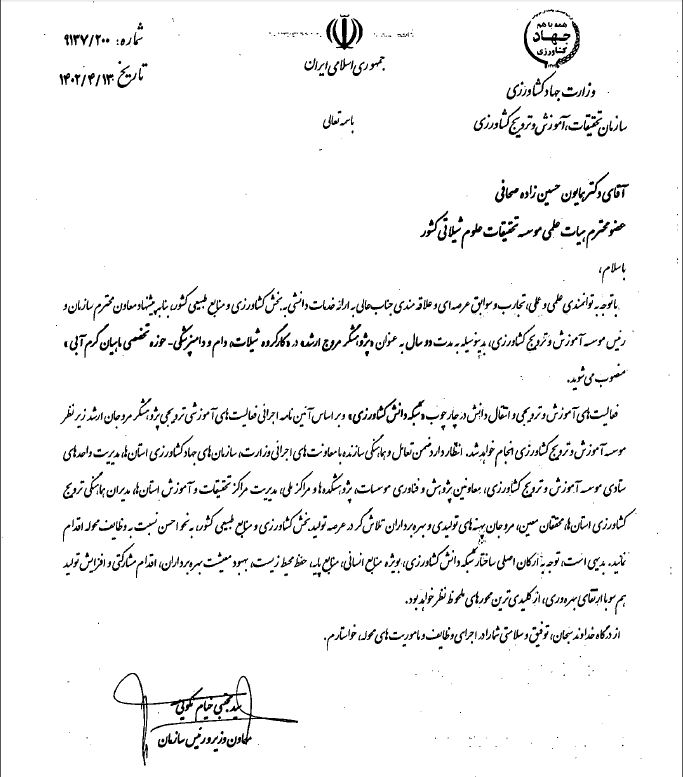 همه با هم
جهاد
کشاورزی
شماره: ۹۱۳۷/۲۰۰
تاریخ ۱۴۰۲/۴/۱۳
جمهوری اسلامی ایران
وزارت جهاد کشاورزی
سازمان تحقیقات، آموزش و ترویج کشاورزی
باسمه تعالی
آقای دکتر همایون حسین زاده صحافی
عضو محترم هیات علمی موسسه تحقیقات علوم شیلاتی کشور
با سلام،
با توجه به توانمندی علمی و عملی، تجارب و سوابق عرصه ای و علاقه مندی جناب عالی به ارائه خدمات دانشی به بخش کشاورزی و منابع طبیعی کشور، بنا به پیشنهاد معاون محترم سازمان و
رئیس موسسه آموزش و ترویج کشاورزی، بدینوسیله به مدت دو سال به عنوان «پژوهشگر مروج ارشد» در «کارگروه شیلات، دام و دامپزشکی- حوزه تخصصی ماهیان گرم آبی»
منصوب می شوید.
فعالیت های آموزش و ترویجی و انتقال دانش در چارچوب «شبکه دانش کشاورزی» و بر اساس آئین نامه اجرائی فعالیت های آموزشی ترویجی پژوهشگر مروجان ارشد زیر نظر
موسسه آموزش و ترویج کشاورزی انجام خواهد شد. انتظار دارد ضمن تعامل و هماهنگی سازنده با معاونت های اجرائی وزارت، سازمان های جهاد کشاورزی استان ها، مدیریت واحدهای
ستادی موسسه آموزش و ترویج کشاورزی، معاونین پژوهش و فناوری موسسات، پژوهشکده ها و مراکز ملی، مدیریت مراکز تحقیقات و آموزش استان ها، مدیران هماهنگی ترویج
کشاورزی استان ها، محققان معین، مروجان پهنه های تولیدی و بهره برداران تلاش گر در عرصه تولید بخش کشاورزی و منابع طبیعی کشور، به نحو احسن نسبت به وظایف محوله اقدام
نمائید. بدیهی است، توجه به ارکان اصلی ساختار شبکه دانش کشاورزی، بویژه منابع انسانی، منابع پایه، حفظ محیط زیست، بهبود معیشت بهره برداران، اقدام مشارکتی و افزایش تولید
هم سو با ارتقای بهره وری، از کلیدی ترین محورهای ملحوظ نظر خواهد بود.
از درگاه خداوند سبحان، توفیق و سلامتی شما را در اجرای وظایف و ماموریت های محوله، خواستارم.
سید مجتبی خیام نکویی
معاون وزیر و رئیس سازمان